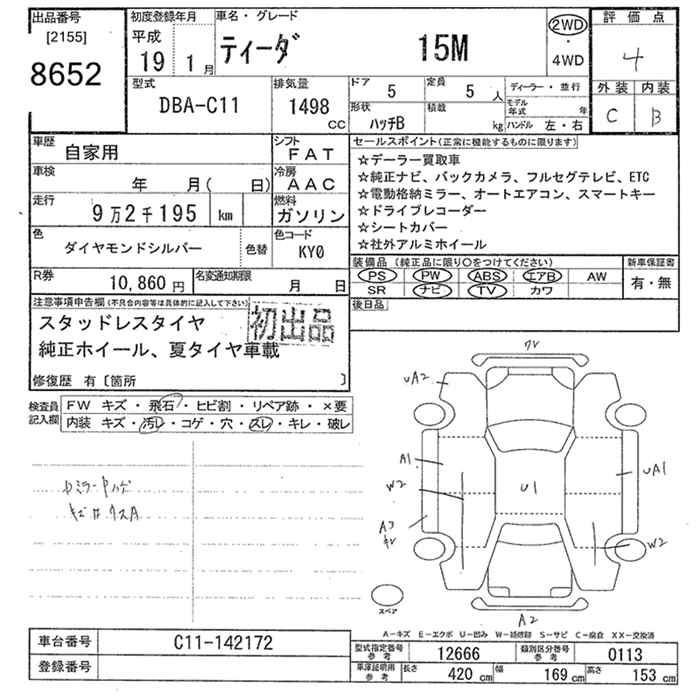 出品番号 [2155] 8652
初度登録年月 平成 19 年 1 月
車名・グレード ティーダ 15M
2WD・4WD
評価点 4
外装 C 内装 B
型式 DBA-C11
排気量 1498 CC
ドア 5 定員 5 人
ディーラー・並行
形状 ハッチB 積載 kg
モデル年式 年
ハンドル 左・右
車歴 自家用
シフト FAT
車検 年 月( 日)
冷房 AAC
走行 9万2千195 km
燃料 ガソリン
色 ダイヤモンドシルバー 色替
色コード KY0
R券 10,860円
名変通知期限 月 日
セールスポイント(正常に機能するものに限ります)
☆デーラー買取車
☆純正ナビ、バックカメラ、フルセグテレビ、ETC
☆電動格納ミラー、オートエアコン、スマートキー
☆ドライブレコーダー
☆シートカバー
☆社外アルミホイール
装備品(純正品に限り○をつけてください)
新車保証書 有・無
PS PW ABS エアB AW
SR ナビ TV カワ
後日品
注意事項申告欄(不具合内容等は具体的に記入して下さい)
スタッドレスタイヤ
純正ホイール、夏タイヤ車載
初出品
修復歴 有〔箇所 〕
検査員記入欄
FW キズ・飛石・ヒビ割・リペア跡・×要
内装 キズ・汚レ・コゲ・穴・スレ・キレ・破レ
UA2
A1
W2
A3
キレ
U1
UA1
W2
A2
スペア
A-キズ E-エクボ U-凹み W-補修跡 S-サビ C-腐食 XX-交換済
車台番号 C11-142172
登録番号
型式指定番号 参考 12666
類別区分番号 参考 0113
車庫証明用 参考 長さ 420 cm 幅 169 cm 高さ 153 cm